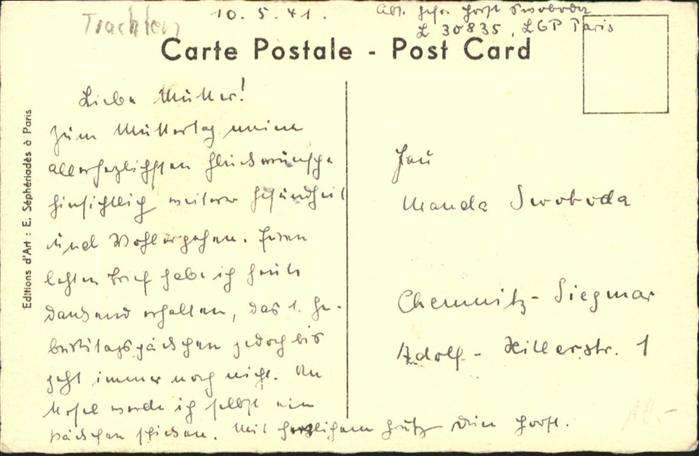 Trachten
10.5.41.
Abs. Gefr. Horst Swoboda
L 30835, LGP Paris
Carte Postale - Post Card
Editions d'Art : E. Séphériadès à Paris
Liebe Mutter!
Zum Muttertag meine
allerherzlichsten Glückwünsche
hinsichtlich weiterer Gesundheit
und Wohlergehen.
letzten Brief habe ich heute
dankend erhalten, das 1. Ge-
burtstagspäckchen jedoch bis
jetzt immer noch nicht. An
werde ich selbst ein
Päckchen schicken. Mit herzlichem Gruß Dein Horst.
Frau
Wanda Swoboda
Chemnitz-Siegmar
Adolf-Hitlerstr. 1